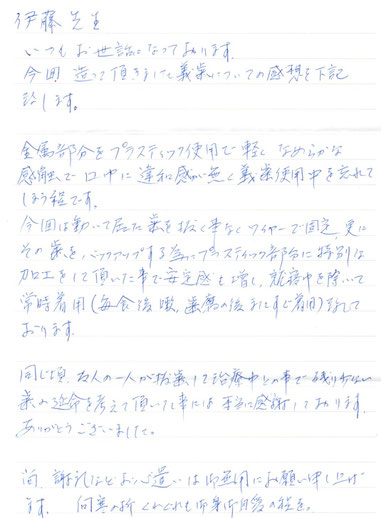 伊藤先生
いつもお世話になっております。
今回 造って頂きました義歯についての感想を下記
致します。
金属部分をプラスティック使用で軽く なめらかな
感触で口中に違和感が無く義歯使用中を忘れて
しまう程です。
今回は動いて居た歯を抜く事なくワイヤーで固定 更に
その歯を、バックアップする為にプラスティック部分に特別な
加工をして頂いた事で安定感も増し、就寝中を除いて
常時着用(毎食後 嗽、歯磨の後またすぐ着用)致して
おります。
同じ頃、友人の一人が抜歯して治療中との事で残り少ない
歯の延命を考えて頂いた事には 本当に感謝しております。
ありがとうございました。
尚、謝礼などお心遣いは御無用にお願い申し上げ
ます。 向寒の折 くれぐれも御身御自愛の程を。